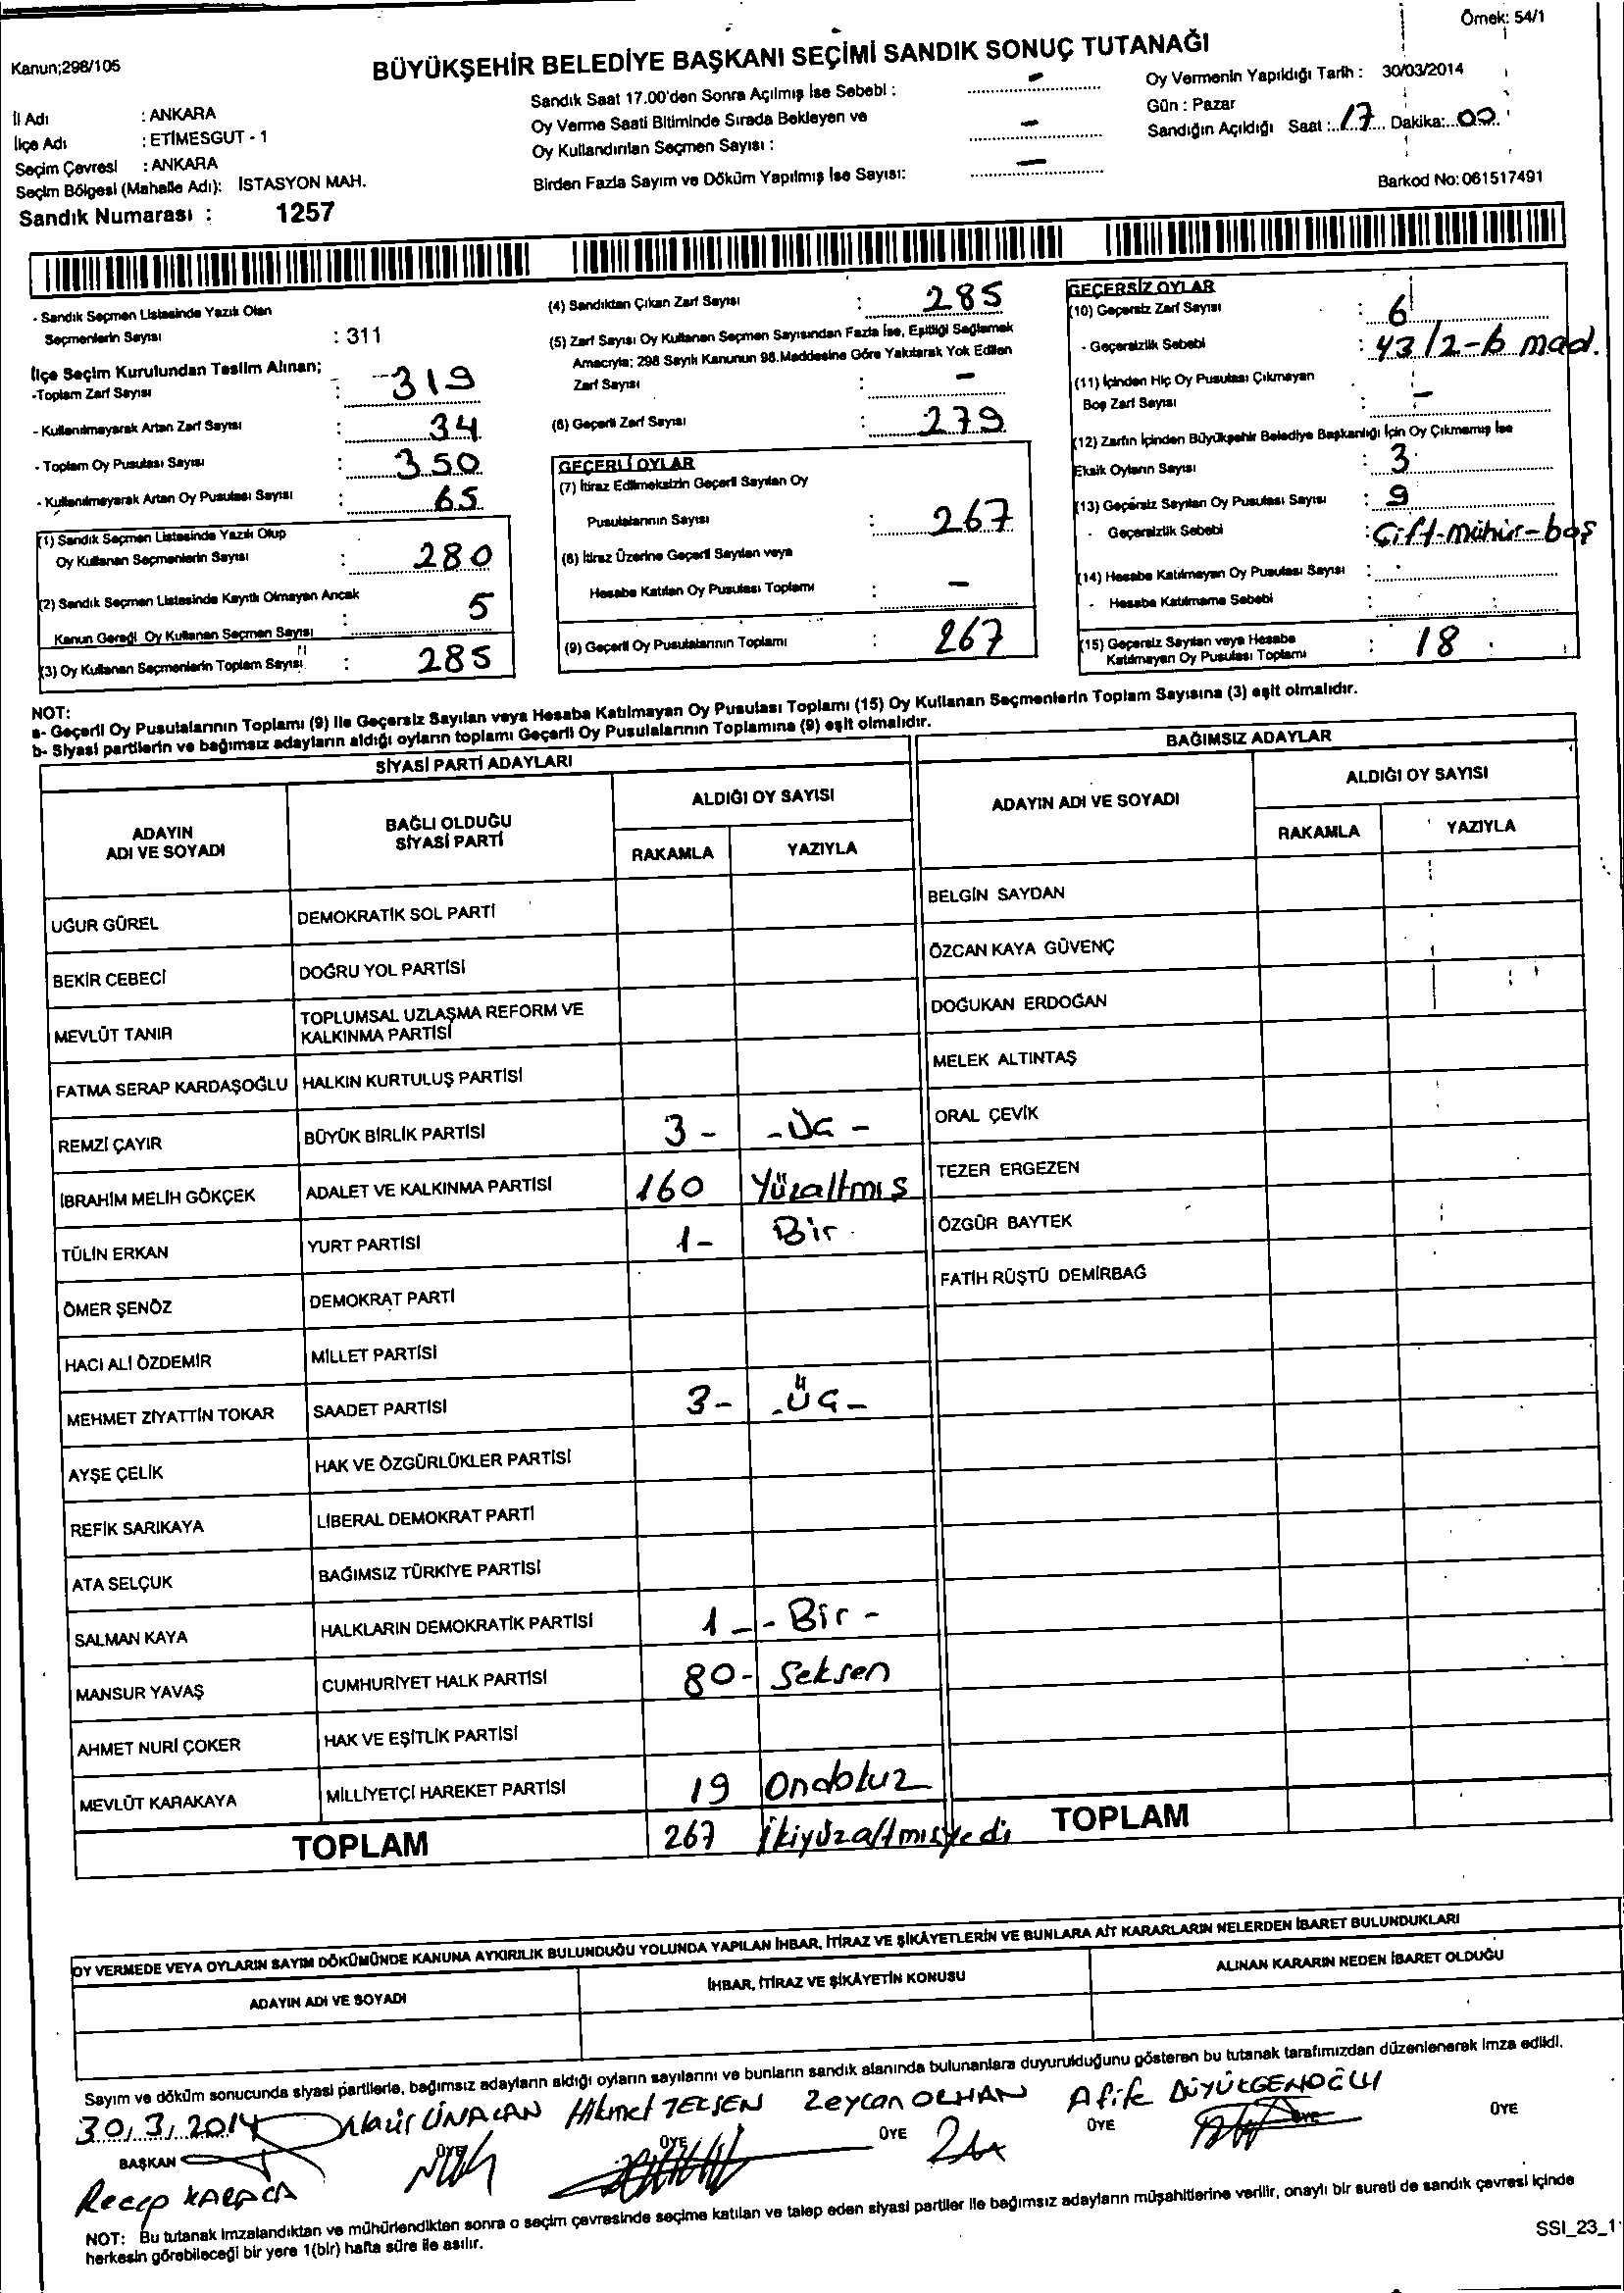 Örnek: 54/1
Kanun;298/105
BÜYÜKŞEHİR BELEDİYE BAŞKANI SEÇİMİ SANDIK SONUÇ TUTANAĞI
İl Adı : ANKARA
İlçe Adı : ETİMESGUT - 1
Seçim Çevresi : ANKARA
Seçim Bölgesi (Mahalle Adı): İSTASYON MAH.
Sandık Numarası : 1257
Sandık Saat 17.00'den Sonra Açılmış İse Sebebi : –
Oy Verme Saati Bitiminde Sırada Bekleyen ve
Oy Kullandırılan Seçmen Sayısı : –
Birden Fazla Sayım ve Döküm Yapılmış İse Sayısı: –
Oy Vermenin Yapıldığı Tarih : 30/03/2014
Gün : Pazar
Sandığın Açıldığı Saat : 17 Dakika: 00
Barkod No: 061517491
- Sandık Seçmen Listesinde Yazılı Olan
Seçmenlerin Sayısı : 311
İlçe Seçim Kurulundan Teslim Alınan;
-Toplam Zarf Sayısı : 319
- Kullanılmayarak Artan Zarf Sayısı : 34
- Toplam Oy Pusulası Sayısı : 350
- Kullanılmayarak Artan Oy Pusulası Sayısı : 65
(1) Sandık Seçmen Listesinde Yazılı Olup
Oy Kullanan Seçmenlerin Sayısı : 280
(2) Sandık Seçmen Listesinde Kayıtlı Olmayan Ancak
Kanun Gereği Oy Kullanan Seçmen Sayısı : 5
(3) Oy Kullanan Seçmenlerin Toplam Sayısı : 285
(4) Sandıktan Çıkan Zarf Sayısı : 285
(5) Zarf Sayısı Oy Kullanan Seçmen Sayısından Fazla İse, Eşitliği Sağlamak
Amacıyla; 298 Sayılı Kanunun 98.Maddesine Göre Yakılarak Yok Edilen
Zarf Sayısı : –
(6) Geçerli Zarf Sayısı : 279
GEÇERLİ OYLAR
(7) İtiraz Edilmeksizin Geçerli Sayılan Oy
Pusulalarının Sayısı : 267
(8) İtiraz Üzerine Geçerli Sayılan veya
Hesaba Katılan Oy Pusulası Toplamı : –
(9) Geçerli Oy Pusulalarının Toplamı : 267
GEÇERSİZ OYLAR
(10) Geçersiz Zarf Sayısı : 6
- Geçersizlik Sebebi : 43/2-b mad.
(11) İçinden Hiç Oy Pusulası Çıkmayan
Boş Zarf Sayısı : –
(12) Zarfın İçinden Büyükşehir Belediye Başkanlığı İçin Oy Çıkmamış İse
Eksik Oyların Sayısı : 3
(13) Geçersiz Sayılan Oy Pusulası Sayısı : 9
- Geçersizlik Sebebi : Çift-mühür-boş
(14) Hesaba Katılmayan Oy Pusulası Sayısı :
- Hesaba Katılmama Sebebi :
(15) Geçersiz Sayılan veya Hesaba
Katılmayan Oy Pusulası Toplamı : 18
NOT:
a- Geçerli Oy Pusulalarının Toplamı (9) ile Geçersiz Sayılan veya Hesaba Katılmayan Oy Pusulası Toplamı (15) Oy Kullanan Seçmenlerin Toplam Sayısına (3) eşit olmalıdır.
b- Siyasi partilerin ve bağımsız adayların aldığı oyların toplamı Geçerli Oy Pusulalarının Toplamına (9) eşit olmalıdır.
SİYASİ PARTİ ADAYLARI
ADAYIN ADI VE SOYADI
BAĞLI OLDUĞU SİYASİ PARTİ
ALDIĞI OY SAYISI
RAKAMLA YAZIYLA
UĞUR GÜREL DEMOKRATİK SOL PARTİ
BEKİR CEBECİ DOĞRU YOL PARTİSİ
MEVLÜT TANIR TOPLUMSAL UZLAŞMA REFORM VE
KALKINMA PARTİSİ
FATMA SERAP KARDAŞOĞLU HALKIN KURTULUŞ PARTİSİ
REMZİ ÇAYIR BÜYÜK BİRLİK PARTİSİ 3 - - Üç -
İBRAHİM MELİH GÖKÇEK ADALET VE KALKINMA PARTİSİ 160 Yüzaltmış
TÜLİN ERKAN YURT PARTİSİ 1- Bir
ÖMER ŞENÖZ DEMOKRAT PARTİ
HACI ALİ ÖZDEMİR MİLLET PARTİSİ
MEHMET ZİYATTİN TOKAR SAADET PARTİSİ 3 - - Üç -
AYŞE ÇELİK HAK VE ÖZGÜRLÜKLER PARTİSİ
REFİK SARIKAYA LİBERAL DEMOKRAT PARTİ
ATA SELÇUK BAĞIMSIZ TÜRKİYE PARTİSİ
SALMAN KAYA HALKLARIN DEMOKRATİK PARTİSİ 1 - - Bir -
MANSUR YAVAŞ CUMHURİYET HALK PARTİSİ 80- Seksen
AHMET NURİ ÇOKER HAK VE EŞİTLİK PARTİSİ
MEVLÜT KARAKAYA MİLLİYETÇİ HAREKET PARTİSİ 19 Ondokuz
TOPLAM 267 İkiyüzaltmışyedi
BAĞIMSIZ ADAYLAR
ADAYIN ADI VE SOYADI
ALDIĞI OY SAYISI
RAKAMLA YAZIYLA
BELGİN SAYDAN
ÖZCAN KAYA GÜVENÇ
DOĞUKAN ERDOĞAN
MELEK ALTINTAŞ
ORAL ÇEVİK
TEZER ERGEZEN
ÖZGÜR BAYTEK
FATİH RÜŞTÜ DEMİRBAĞ
TOPLAM
OY VERMEDE VEYA OYLARIN SAYIM DÖKÜMÜNDE KANUNA AYKIRILIK BULUNDUĞU YOLUNDA YAPILAN İHBAR, İTİRAZ VE ŞİKÂYETLERİN VE BUNLARA AİT KARARLARIN NELERDEN İBARET BULUNDUKLARI
ADAYIN ADI VE SOYADI
İHBAR, İTİRAZ VE ŞİKÂYETİN KONUSU
ALINAN KARARIN NEDEN İBARET OLDUĞU
Sayım ve döküm sonucunda siyasi partilerle, bağımsız adayların aldığı oyların sayılarını ve bunların sandık alanında bulunanlara duyurulduğunu gösteren bu tutanak tarafımızdan düzenlenerek imza edildi.
30/3/2014 Hikmet Zeycan ORHAN Afife
BAŞKAN ÜYE ÜYE ÜYE ÜYE ÜYE ÜYE
Recep KARACA
NOT: Bu tutanak imzalandıktan ve mühürlendikten sonra o seçim çevresinde seçime katılan ve talep eden siyasi partiler ile bağımsız adayların müşahitlerine verilir, onaylı bir sureti de sandık çevresi içinde
herkesin görebileceği bir yere 1(bir) hafta süre ile asılır.
SSI_23_1